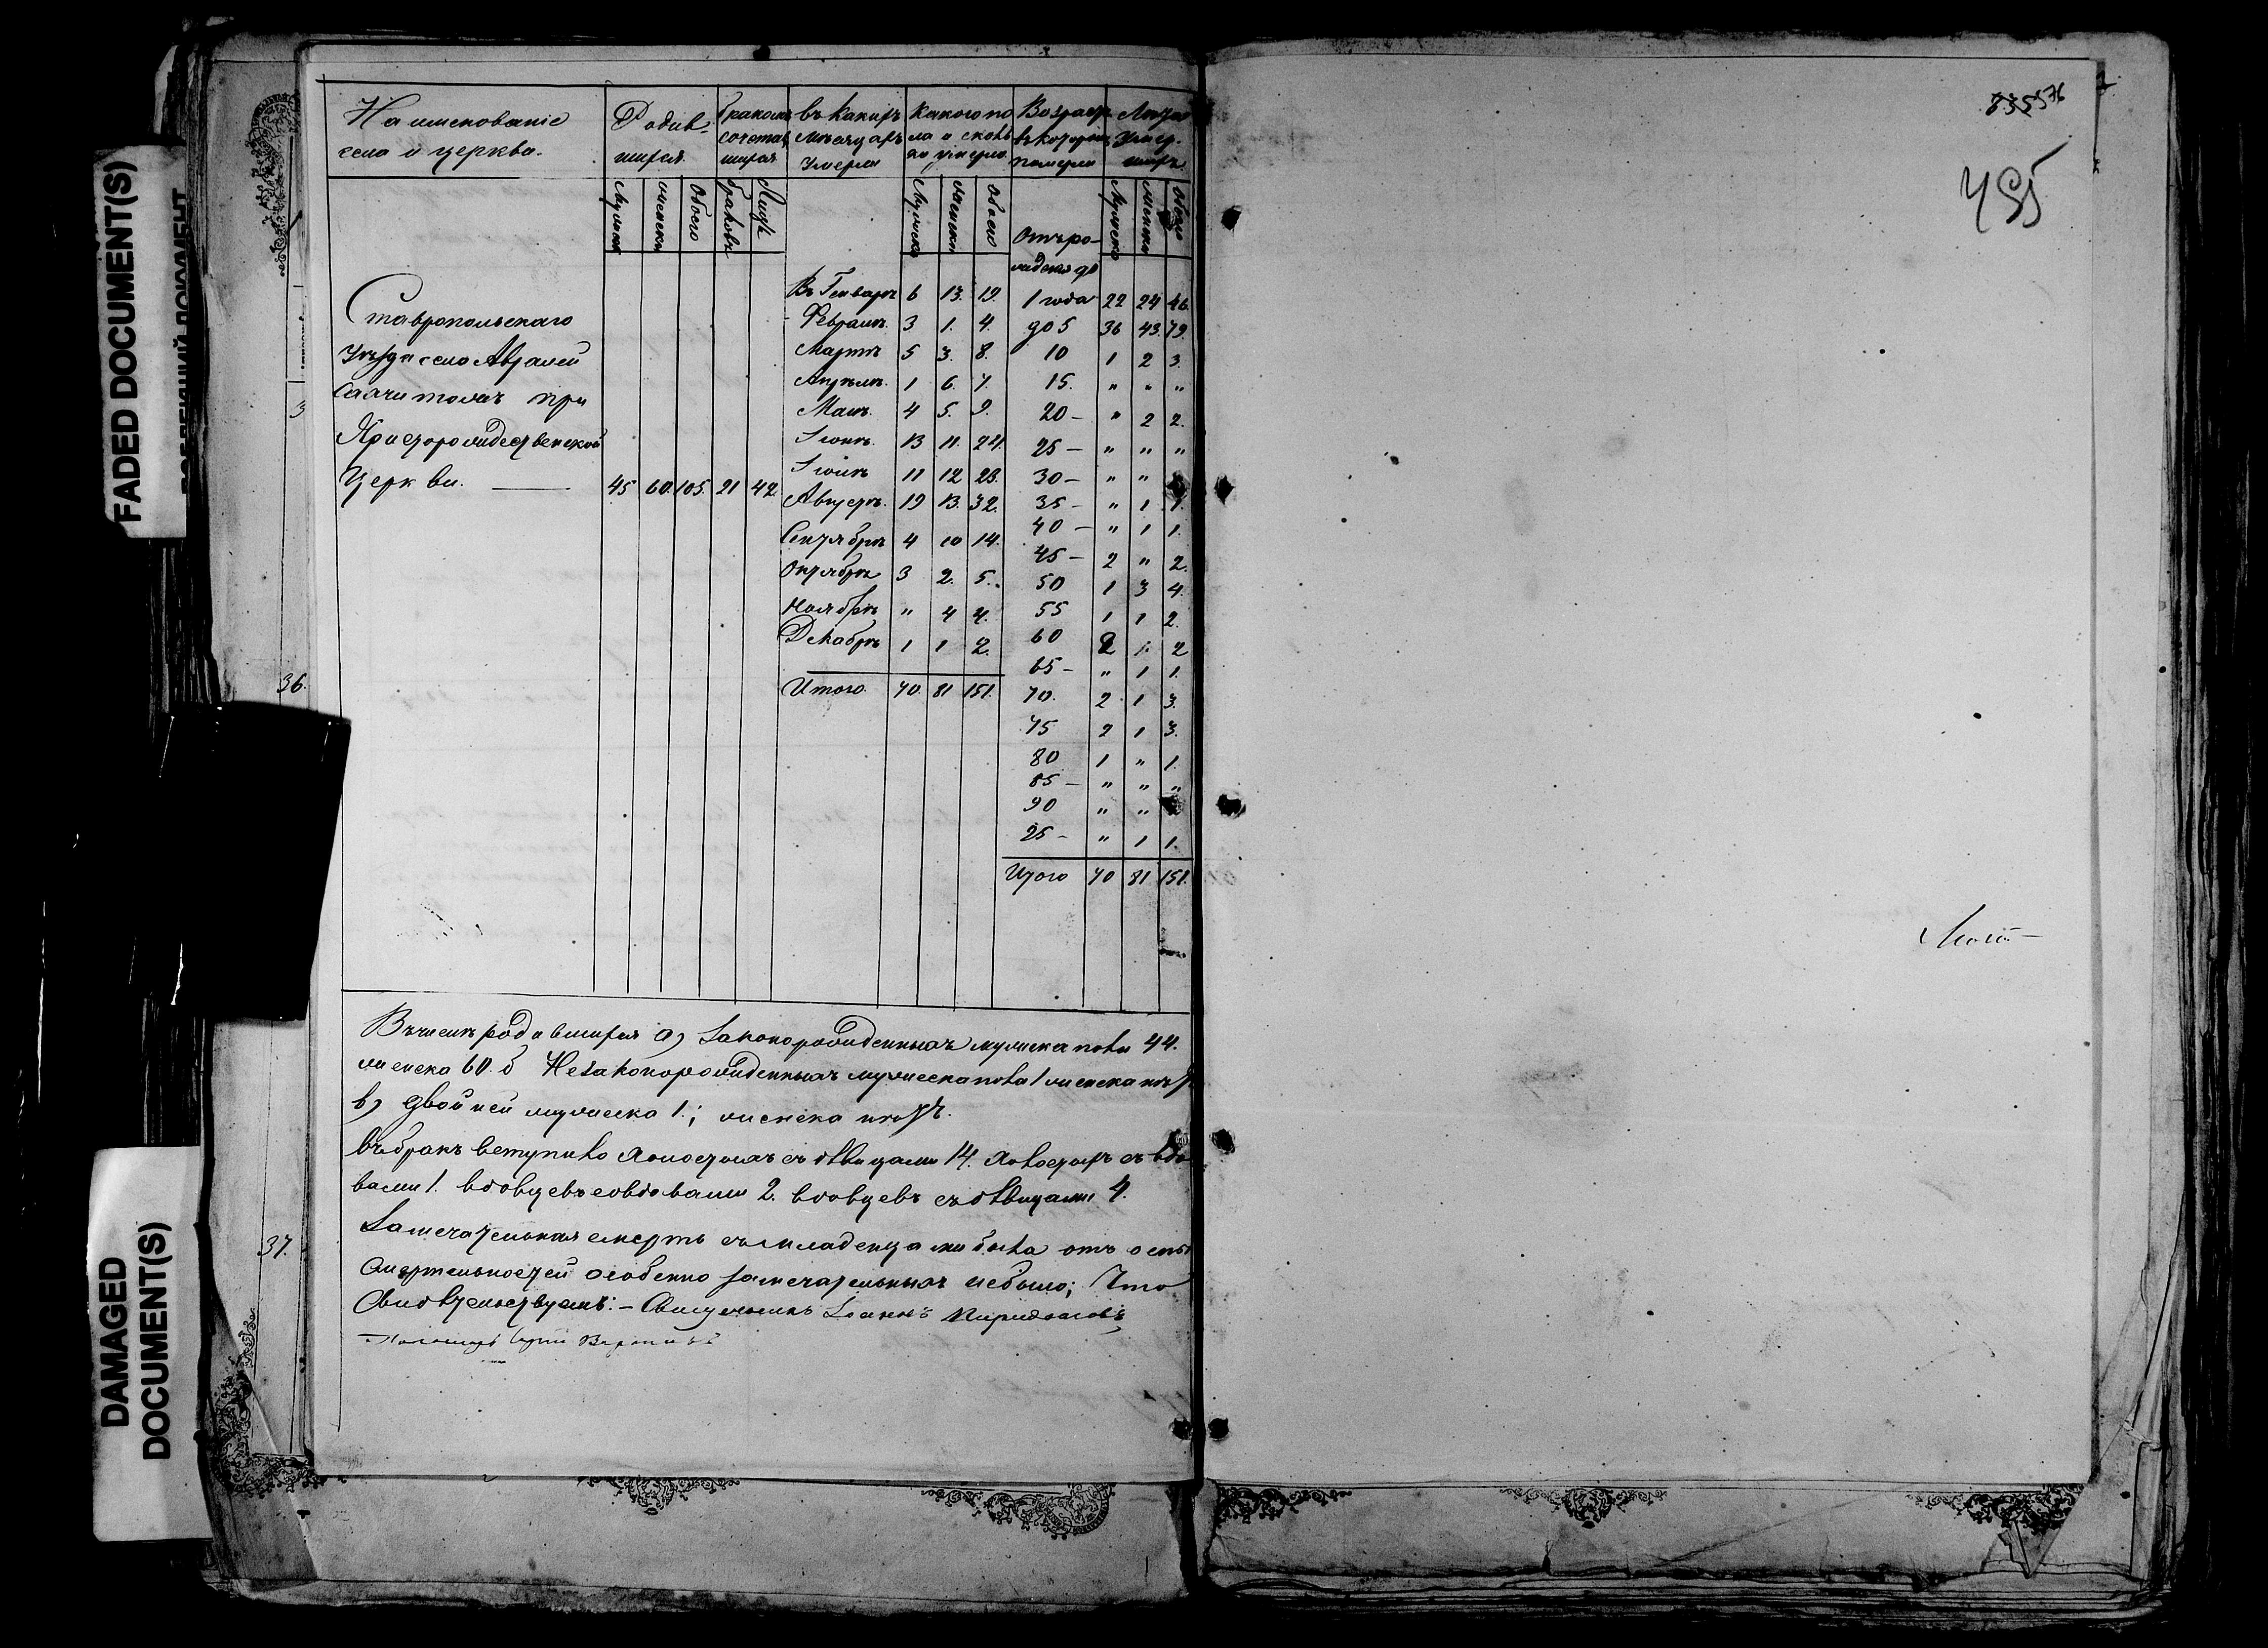 FADED DOCUMENT(S)
DAMAGED
DOCUMENT(S)
36.
37.
Наименованіе
села и церкви.
Родив-
шихся
бракомъ
сочетав
шихся
въ какихъ
мѣсяцахъ
умерли
какого по
ла и сколь
ко умерло
Возрастъ
въ которомъ
померли
Лѣта
умер-
шихъ
Мужска женска Обоего браковъ Лицъ Мужска женска Обоего Мужска женска Обоего
Отъ ро-
жденія до
Ставропольскаго
Уѣзда села Авралей
Салчи тожъ при
Христорождественской
Церкви. — 45 60. 105. 21 42
Въ Генварѣ 6 13. 19.
Февралѣ. 3 1. 4.
Мартѣ 5 3. 8.
Апрѣлѣ. 1 6. 7.
Маѣ. 4 5. 9.
Іюнѣ. 13 11. 24.
Іюлѣ 11 12 23.
Августѣ. 19 13. 32.
Сентябрѣ 4 10 14.
Октябрѣ 3 2. 5.
Ноябрѣ " 4 4.
Декабрѣ 1 1 2.
Итого. 70. 81 151.
1 года 22 24 46.
до 5 36 43. 79.
10 1 2 3.
15. " " "
20 — " 2 2.
25 — " " "
30 — " "
35 — " 1 1.
40 — " 1 1.
45 — 2 " 2.
50 1 3 4.
55 1 1 2.
60 2 1. 2
65 — " 1 1.
70. 2 1 3.
75 2 1 3.
80 1 " 1.
85 — " " "
90 " "
95 — " 1 1.
Итого 70 81 151.
Въ числѣ родившихся а) Законорожденныхъ мужска пола 44.
женска 60. б Незаконорожденныхъ мужеска пола 1 женска нѣтъ
в) двойней мужеска 1.; женска нѣтъ.
въ бракъ вступило холостыхъ съ дѣвицами 14. холостыхъ съ вдо
вами 1. вдовцевъ со вдовами 2. вдовцевъ съ дѣвицами 4.
Замечательная смерть съ младенцами была отъ оспы
смертельностей особенно замечательныхъ небыло; Что
Свидѣтельствуемъ: — Священникъ Іоаннъ
435